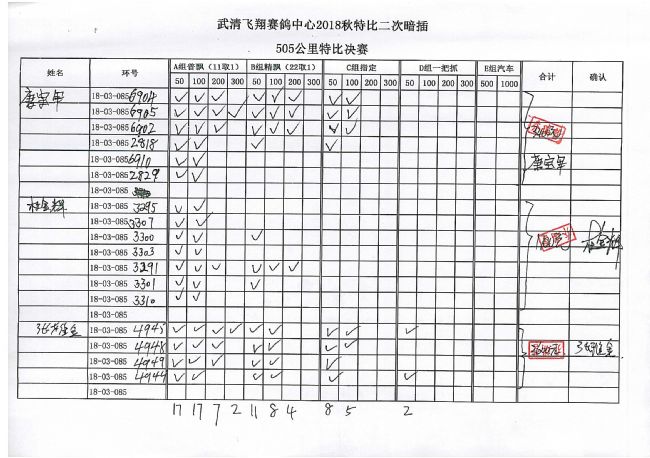 武清飞翔赛鸽中心2018秋特比二次暗插
505公里特比决赛
姓名 环号 A组普飘（11取1） B组精飘（22取1） C组指定 D组一把抓 E组汽车 合计 确认
50 100 200 300 50 100 200 300 50 100 200 300 50 100 200 300 500 1000
18-03-0856904 ✓ ✓ ✓ ✓ ✓ ✓ ✓ ✓
18-03-0856905 ✓ ✓ ✓ ✓ ✓ ✓ ✓ ✓ ✓
18-03-0856902 ✓ ✓ ✓ ✓ ✓ ✓ ✓ ✓
18-03-0852818 ✓ ✓ ✓ ✓
18-03-0856910 ✓ ✓
18-03-0852829 ✓ ✓
18-03-085
18-03-0853295 ✓ ✓
18-03-0853307 ✓ ✓
18-03-0853300 ✓ ✓ ✓
18-03-0853303 ✓ ✓
18-03-0853291 ✓ ✓ ✓ ✓ ✓ ✓
18-03-0853301 ✓ ✓ ✓
18-03-0853310 ✓ ✓
18-03-085
18-03-0854945 ✓ ✓ ✓ ✓ ✓ ✓ ✓ ✓ ✓
18-03-0854948 ✓ ✓ ✓ ✓ ✓ ✓ ✓
18-03-0854949 ✓ ✓ ✓ ✓ ✓ ✓
18-03-0854944 ✓ ✓ ✓ ✓ ✓ ✓
18-03-085
17 17 7 2 11 8 4 8 5 2